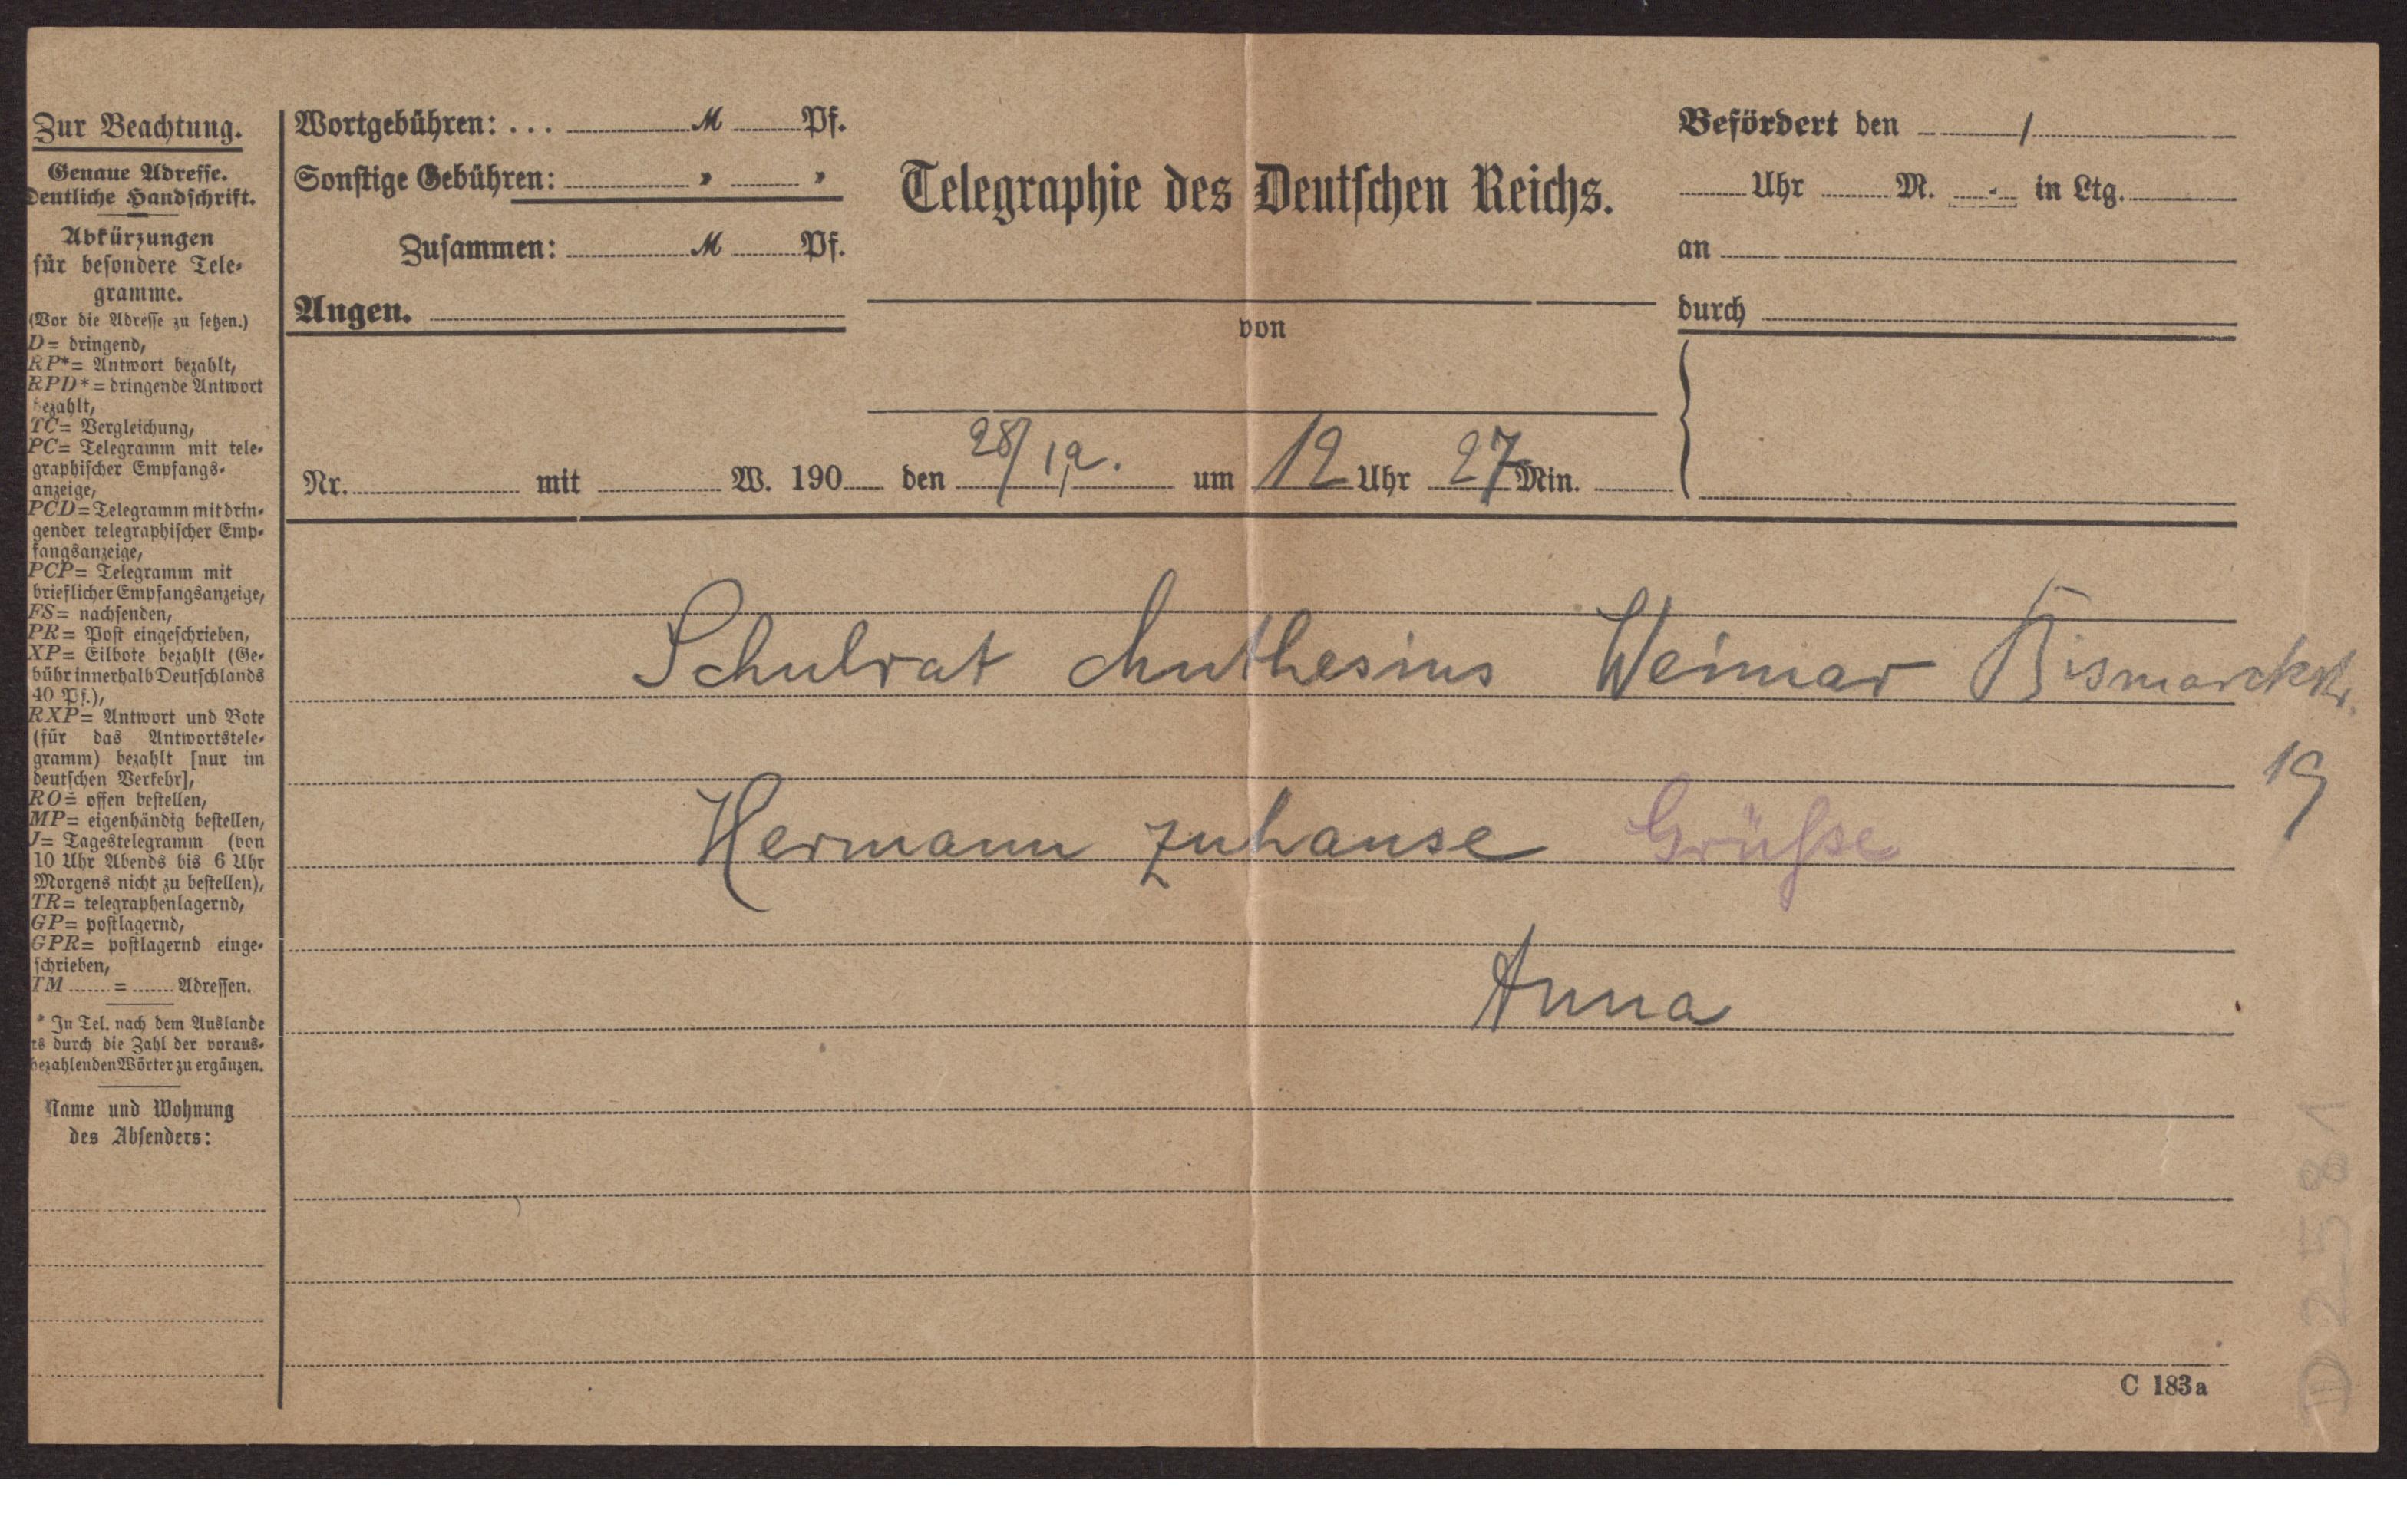 Zur Beachtung.
Genaue Adresse.
Deutliche Handschrift.
Abkürzungen
für besondere Tele-
gramme.
(Vor die Adresse zu setzen.)
D = dringend,
RP* = Antwort bezahlt,
RPD* = dringende Antwort
bezahlt,
TC = Vergleichung,
PC = Telegramm mit tele-
graphischer Empfangs-
anzeige,
PCD = Telegramm mit drin-
gender telegraphischer Emp-
fangsanzeige,
PCP = Telegramm mit
brieflicher Empfangsanzeige,
FS = nachsenden,
PR = Post eingeschrieben,
XP = Eilbote bezahlt (Ge-
bühr innerhalb Deutschlands
40 Pf.),
RXP = Antwort und Bote
(für das Antwortstele-
gramm) bezahlt [nur im
deutschen Verkehr],
RO = offen bestellen,
MP = eigenhändig bestellen,
J = Tagestelegramm (von
10 Uhr Abends bis 6 Uhr
Morgens nicht zu bestellen),
TR = telegraphenlagernd,
GP = postlagernd,
GPR = postlagernd einge-
schrieben,
TM ...... = ...... Adressen.
* In Tel. nach dem Auslande
ts durch die Zahl der voraus-
bezahlenden Wörter zu ergänzen.
Name und Wohnung
des Absenders:
Wortgebühren: ... M Pf.
Sonstige Gebühren: " "
Zusammen: M Pf.
Angen.
Telegraphie des Deutschen Reichs.
von
Befördert den /
Uhr M. - in Ltg.
an
durch
Nr. mit W. 190 den 28/12. um 12 Uhr 27 Min.
Schulrat Muthesius Weimar Bismarckstr.
19
Hermann zuhause Grüsse
Anna
C 183a
D2581